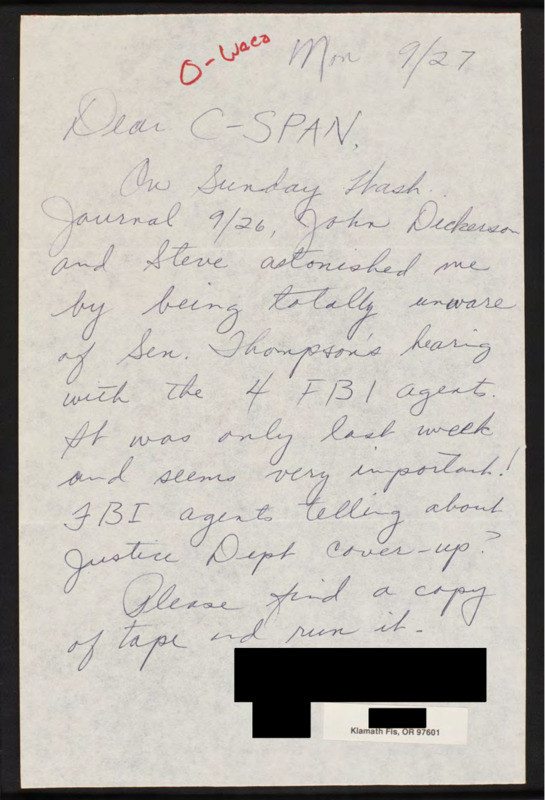 O-Waco
Mon 9/27
Dear C-SPAN,
On Sunday Wash.
Journal 9/26, John Dickerson
and Steve astonished me
by being totally unware
of Sen. Thompson's hearing
with the 4 FBI agents.
It was only last week
and seems very important!
FBI agents telling about
Justice Dept cover-up?
Please find a copy
of tape and run it.
Klamath Fls, OR 97601